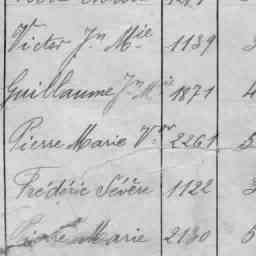 Victor Jn Mie 1139
Guillaume Jn Mie 1871 4
Pierre Marie Vor 2261 5
Frédéric Sévère 1122 3
Pierre Marie 2130 5